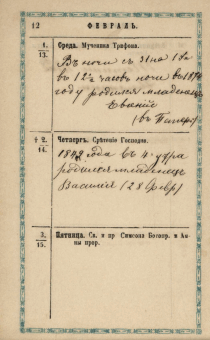 12
ФЕВРАЛЬ.
1.
13.
Среда. Мученика Трифона.
Въ ночи съ 31 на 1 въ
въ 12½ часовъ ночи въ 187
году родился младенецъ
(въ
† 2.
14.
Четвергъ. Срѣтеніе Господне.
1849 года въ 4 утра
родился младенецъ
Василій (2 Февр)
3.
15.
Пятница. Св. и пр. Симеона Богопр. и Ан-
ны прор.